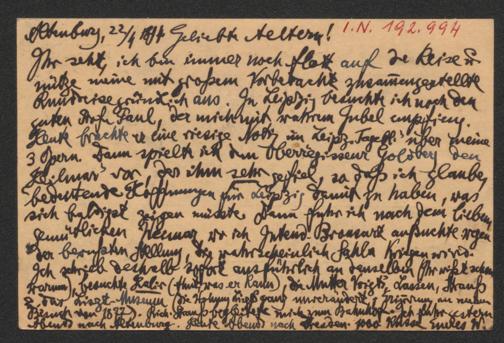 Altenburg, 22/4 1894 Geliebte Aeltern! I.N. 192.994
Ihr seht, ich bin immer noch flott auf der Reise u.
nütze meine mit großem Vorbedacht zusammengestellte
Rundreise gründlich aus. In Leipzig besuchte ich noch den
guten Prof. Paul, der mich mit wahrem Jubel empfieng.
Heute brachte er eine riesige Notiz im Leipz. Tagebl. über meine
3 Opern. Dann spielte ich dem Oberregisseur Goldberg den
vor, der ihm sehr gefiel, so daß ich glaube,
bedeutende Hoffnungen für Leipzig damit zu haben, was
sich baldigst zeigen müsste. Dann fuhr ich nach dem lieben
gemütlichen Weimar, wo ich Intend. Bronsart aufsuchte wegen
der bewussten Stellung, die wahrscheinlich kriegen wird.
Ich schrieb deshalb sofort ausführlich an denselben (Ihr wißt schon
warum), besuchte (thut was er kann), die Mutter Voigts, Lassen,
& das Liszt-Museum (die Wohnung ganz unverändert, Erinnerung an meinen
Besuch von 188). Rich. Strauß begleitete mich zum Bahnhof. Ich fuhr gestern
Abends nach Altenburg. Heute Abends nach Dresden. 1000 Küsse Eures W.